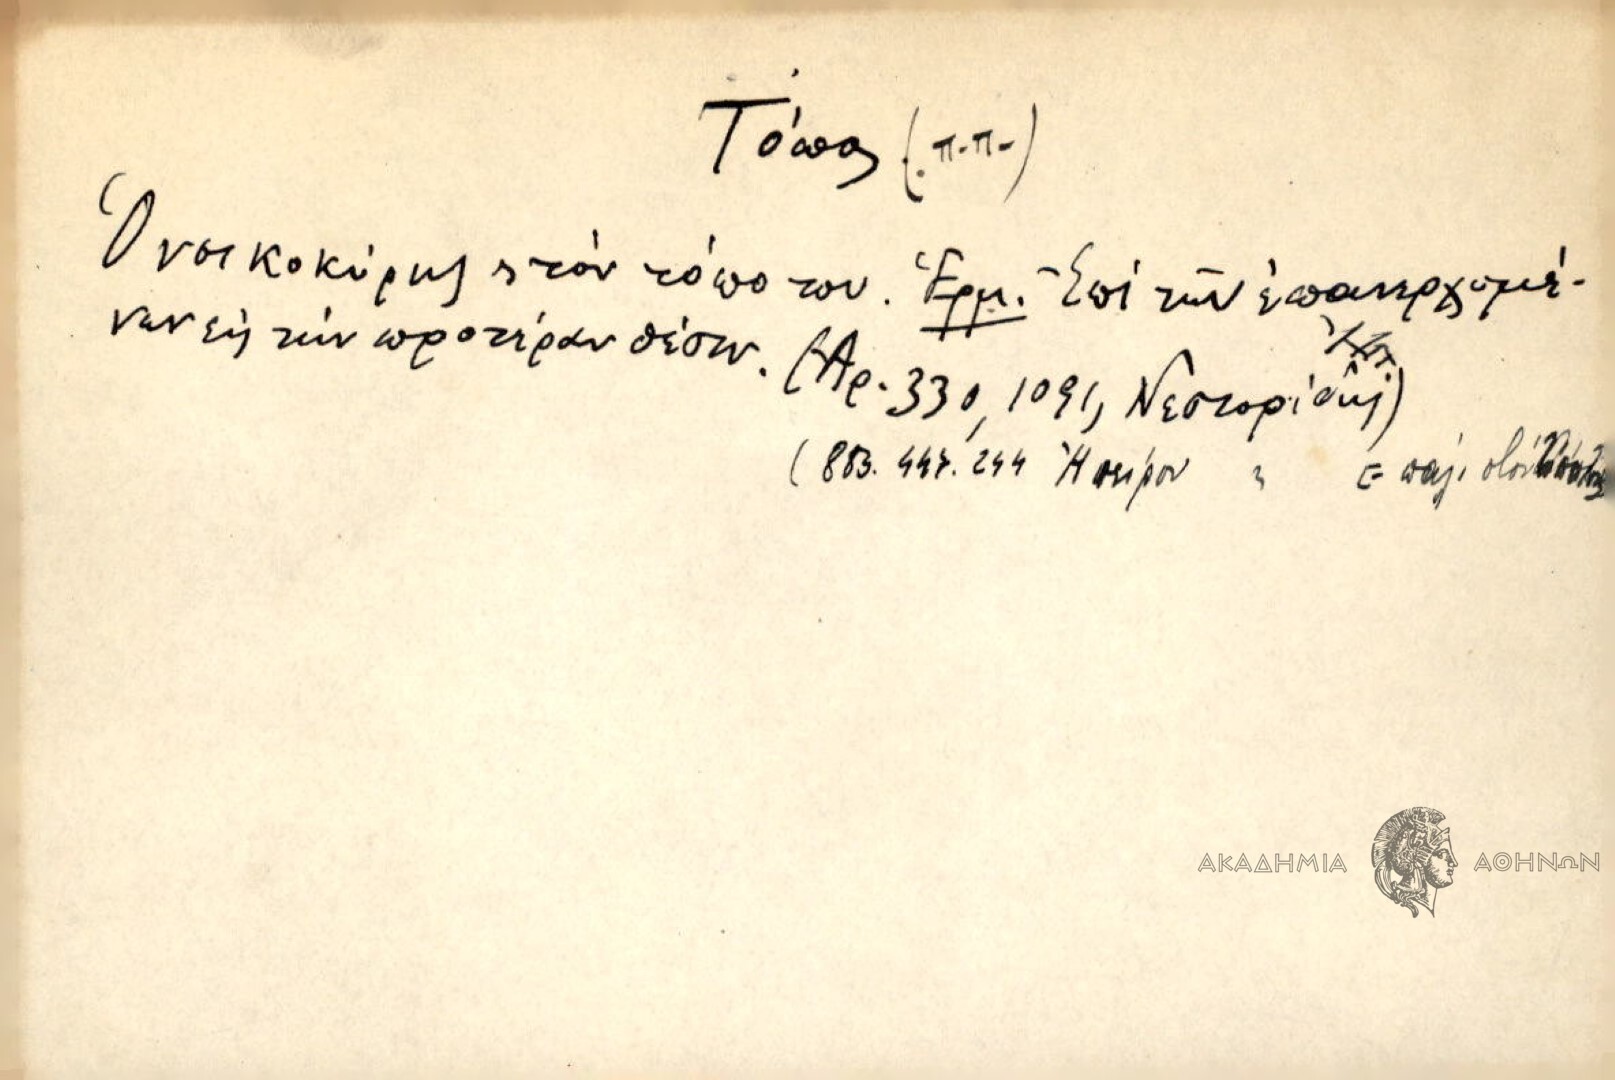 Τόπος (π.π.)
Ὁ νοικοκύρης στὸν τόπο του. Ἑρμ. Ἐπί τῶν ἐπανερχομέ-
νων εἰς τήν προτέραν θέσιν. (Ἀρ. 330, 1091, Νεστορίδης)
(883. 447. 244 Ἠπείρου
ΑΚΑΔΗΜΙΑ ΑΘΗΝΩΝ